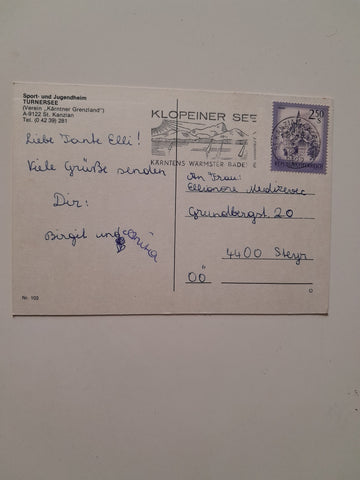 Sport- und Jugendheim
TURNERSEE
(Verein „Kärntner Grenzland")
A-9122 St. Kanzian
Tel. (0 42 39) 281
KLOPEINER SEE
KÄRNTENS WÄRMSTER BADE
2.50
S
Liebe Tante Elli!
Viele Grüße senden
Dir:
Birgit und
An Frau:
Ellionore
Grundbergst. 20
4400 Steyr
OÖ
Nr. 103